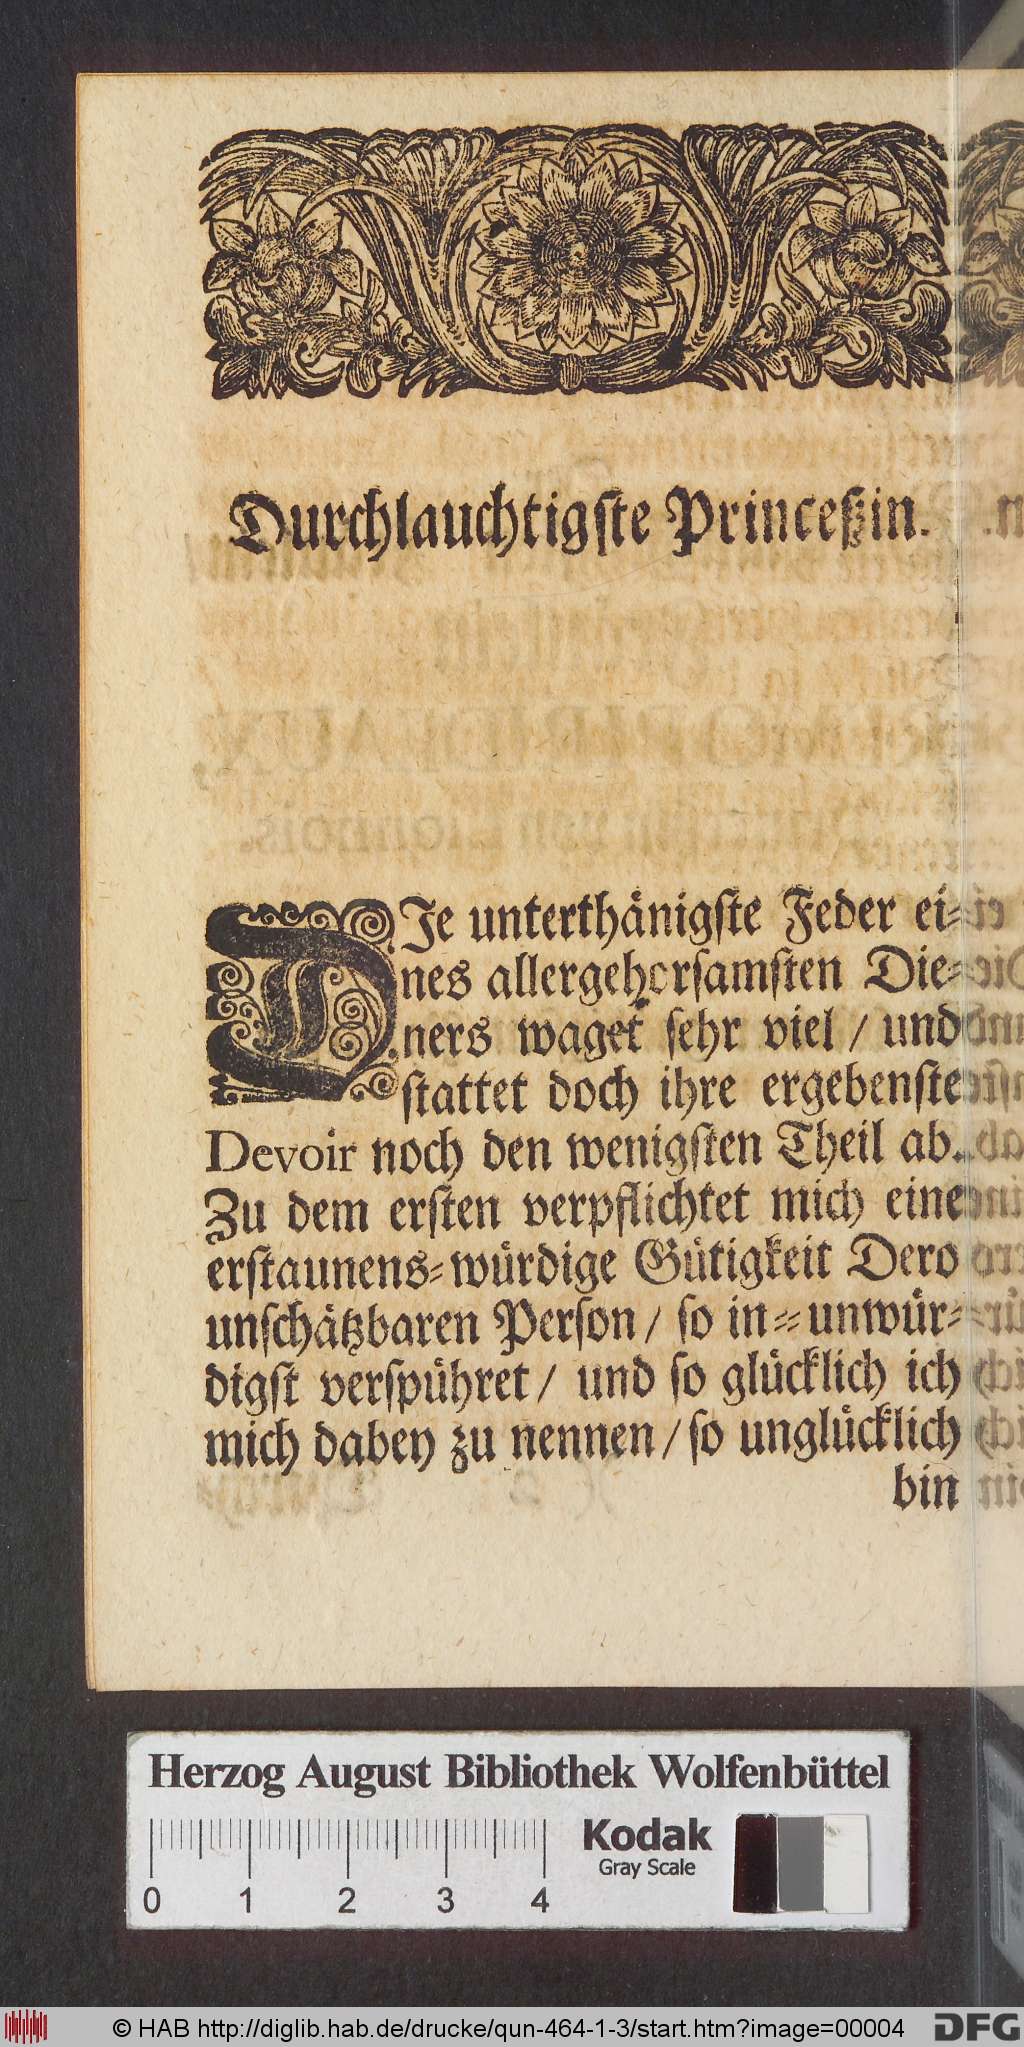 Durchlauchtigſte Princeßin.
DIe unterthänigſte Feder ei⸗
nes allergehorſamſten Die⸗
ners waget ſehr viel / und
ſtattet doch ihre ergebenſte
Devoir noch den wenigſten Theil ab.
Zu dem erſten verpflichtet mich eine
erſtaunens⸗würdige Gütigkeit Dero
unſchätzbaren Perſon / ſo in⸗⸗unwür⸗
digſt verſpühret / und ſo glücklich ich
mich dabey zu nennen / ſo unglücklich
bin
Herzog August Bibliothek Wolfenbüttel
0 1 2 3 4
Kodak
Gray Scale
© HAB http://diglib.hab.de/drucke/qun-464-1-3/start.htm?image=00004
DFG